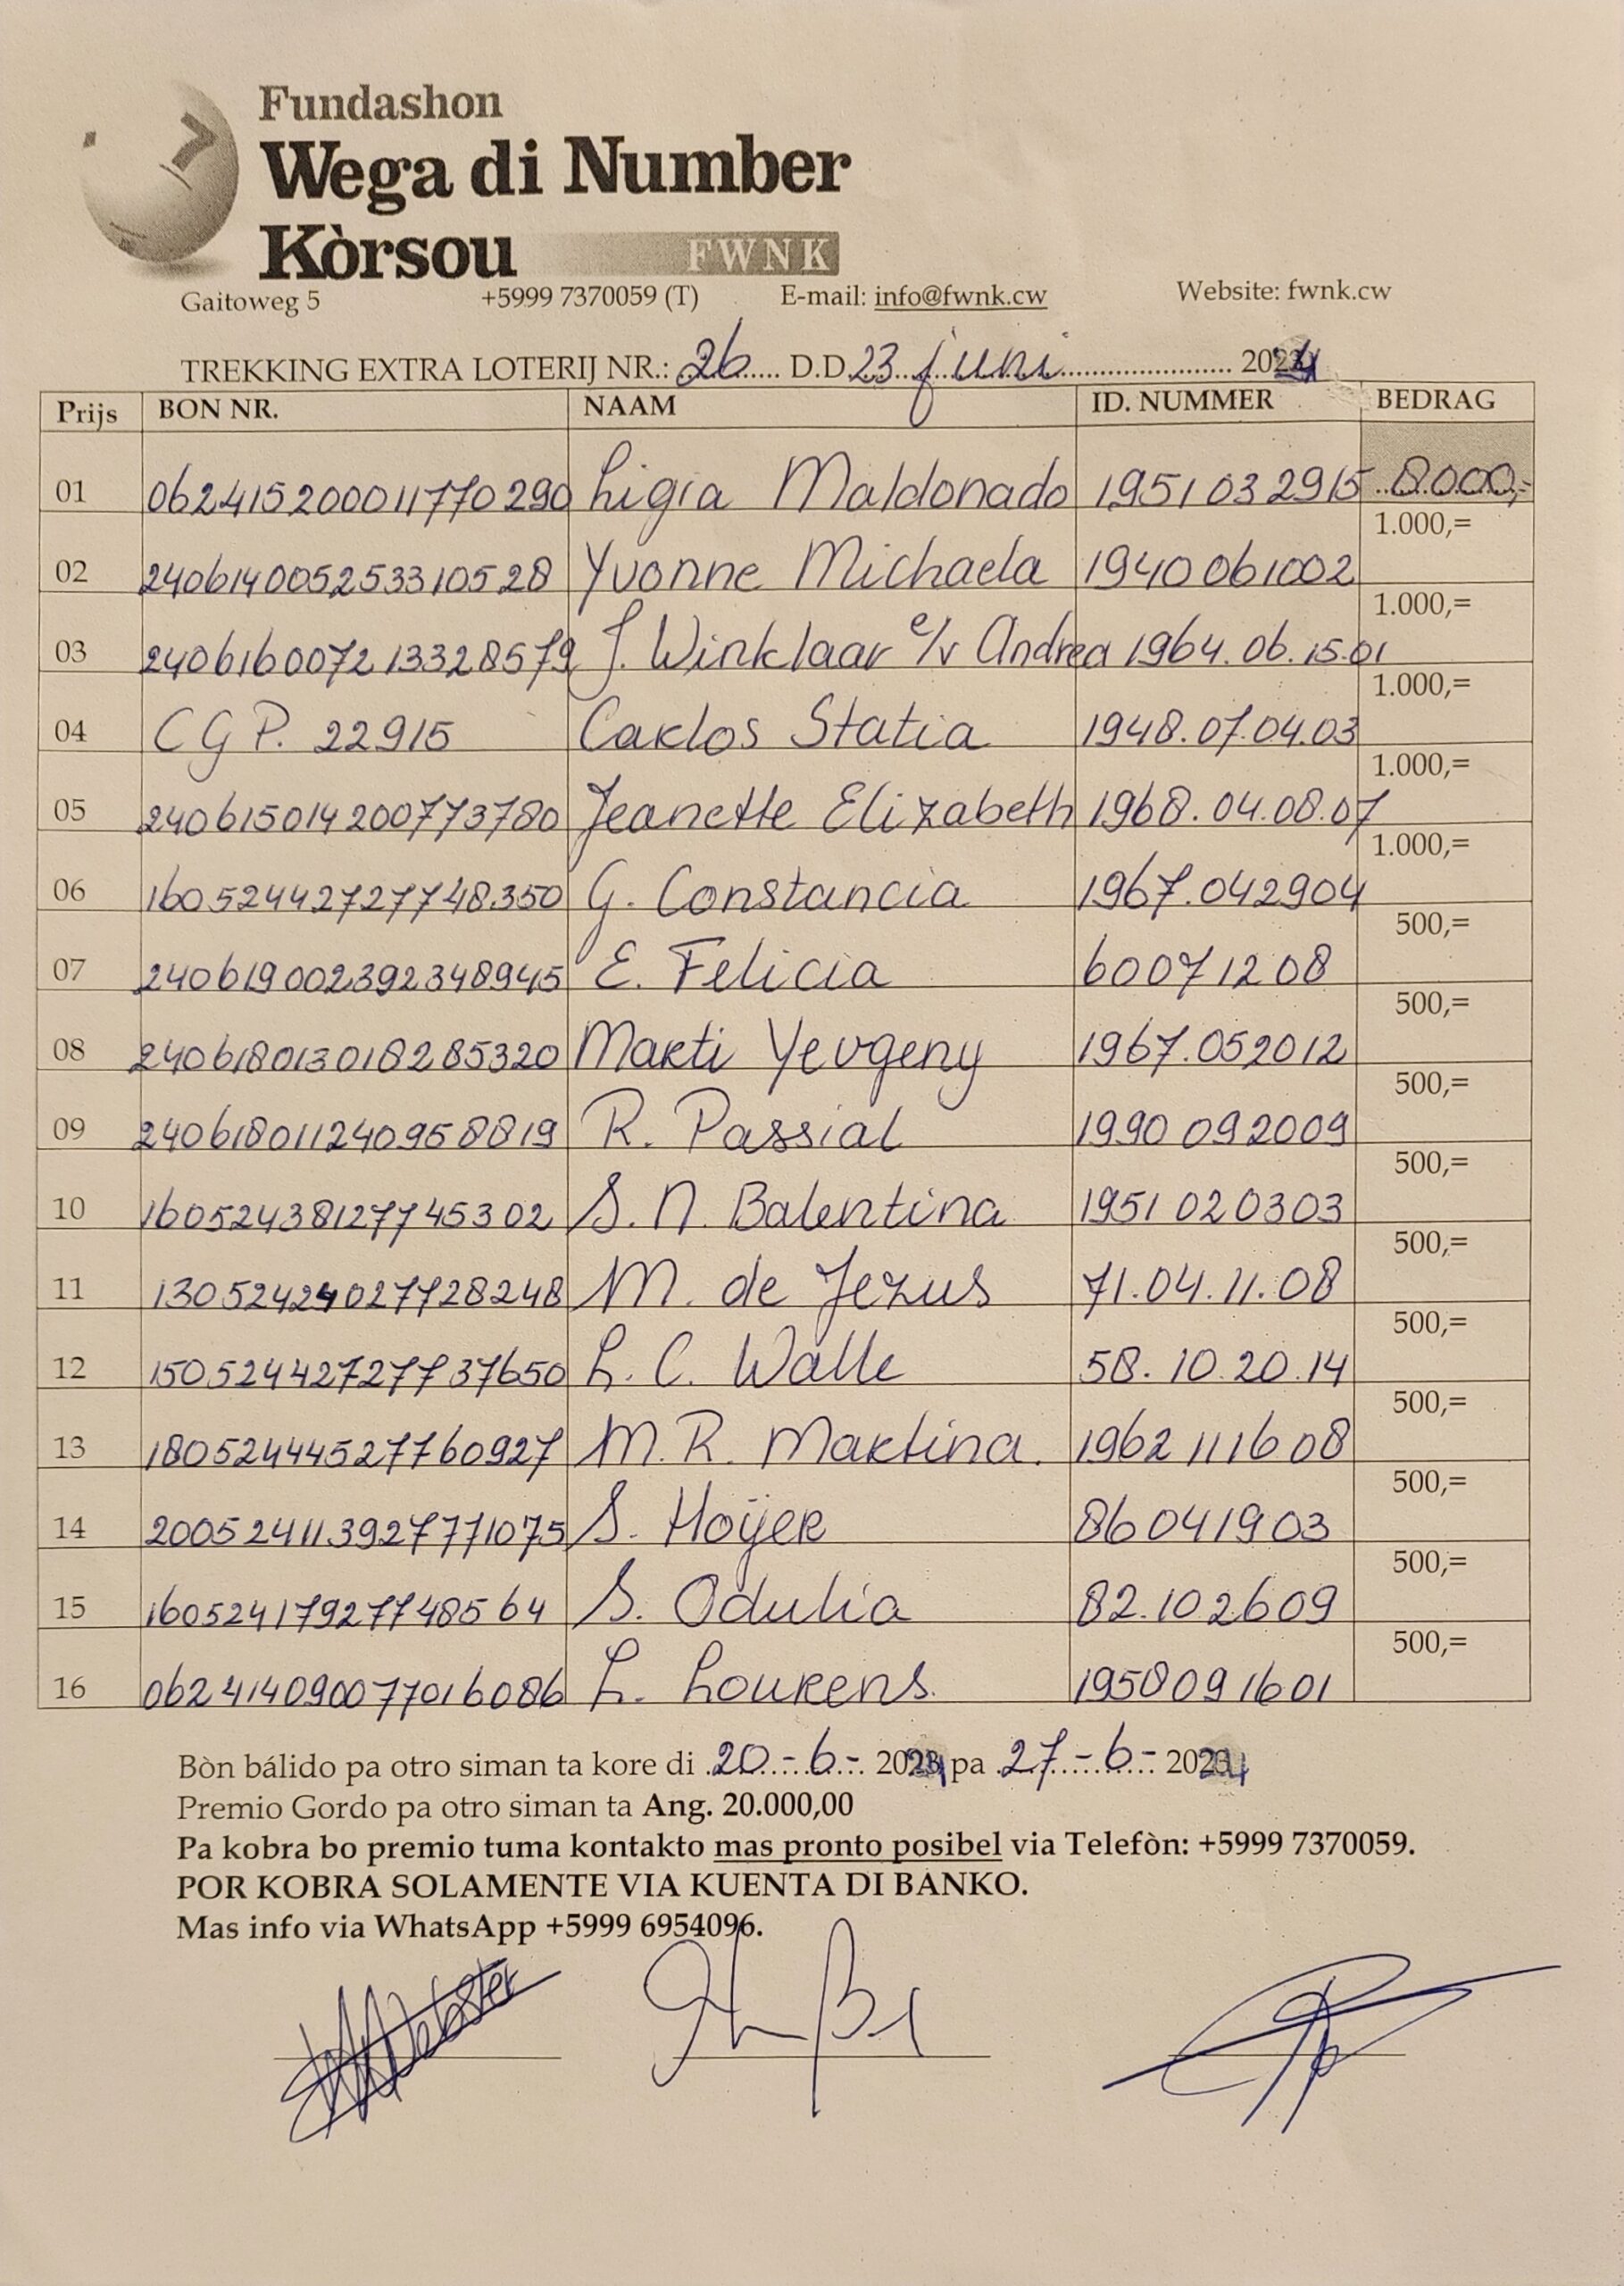 Fundashon
Wega di Number
Kòrsou FWNK
Gaitoweg 5 +5999 7370059 (T) E-mail: info@fwnk.cw Website: fwnk.cw
TREKKING EXTRA LOTERIJ NR.: 26 D.D. 23 juni 2024
Prijs BON NR. NAAM ID. NUMMER BEDRAG
01 062415200011770290 Ligia Maldonado 1951032915 8000,-
02 240614005253310528 Yvonne Michaela 1940061002 1.000,=
03 240616007213328579 J. Winklaar e/v Andrea 1964.06.15.01 1.000,=
04 CGP. 22915 Carlos Statia 1948.07.04.03 1.000,=
05 240615014200773780 Jeanette Elizabeth 1968.04.08.07 1.000,=
06 16052442727748350 G. Constancia 1967.042904 1.000,=
07 240619002392348945 E. Felicia 60071208 500,=
08 240618013018285320 Marti Yevgeny 1967.052012 500,=
09 240618011240958819 R. Passial 1990092009 500,=
10 16052438127745302 S.N. Balentina 1951020303 500,=
11 13052424027728248 M. de Jezus 71.04.11.08 500,=
12 15052442727737650 L.C. Walle 58.10.20.14 500,=
13 18052444527760927 M.R. Martina. 1962111608 500,=
14 200524113927771075 S. Hoÿer 86041903 500,=
15 16052417927748564 S. Odulia 82.102609 500,=
16 062414090077016086 L. Lourens. 1958091601 500,=
Bòn bálido pa otro siman ta kore di 20-6- 2024 pa 27-6- 2024
Premio Gordo pa otro siman ta Ang. 20.000,00
Pa kobra bo premio tuma kontakto mas pronto posibel via Telefòn: +5999 7370059.
POR KOBRA SOLAMENTE VIA KUENTA DI BANKO.
Mas info via WhatsApp +5999 6954096.